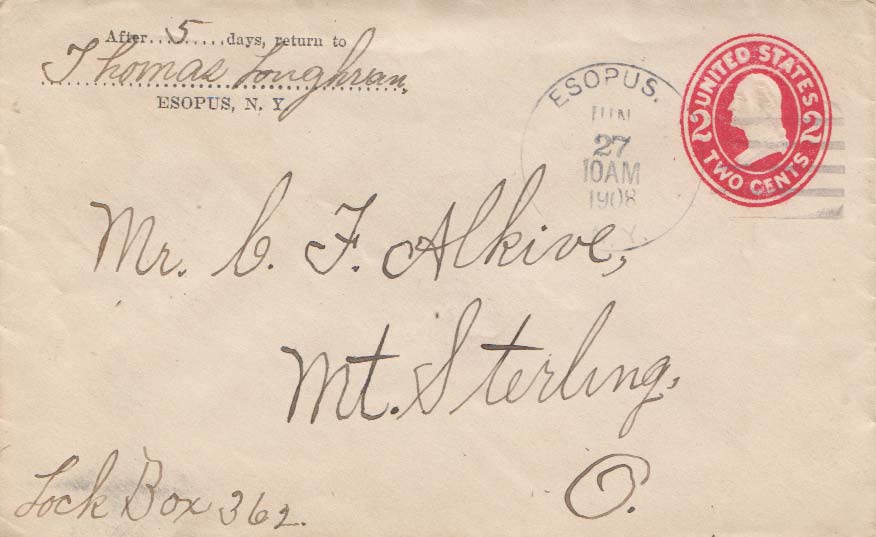 After...5......days, return to
Thomas Loughran,
ESOPUS, N. Y.
ESOPUS.
JUN
27
10AM
1908
N.Y.
UNITED STATES
2 2
TWO CENTS
Mr. C. F. Alkire,
Mt. Sterling,
O.
Lock Box 362.